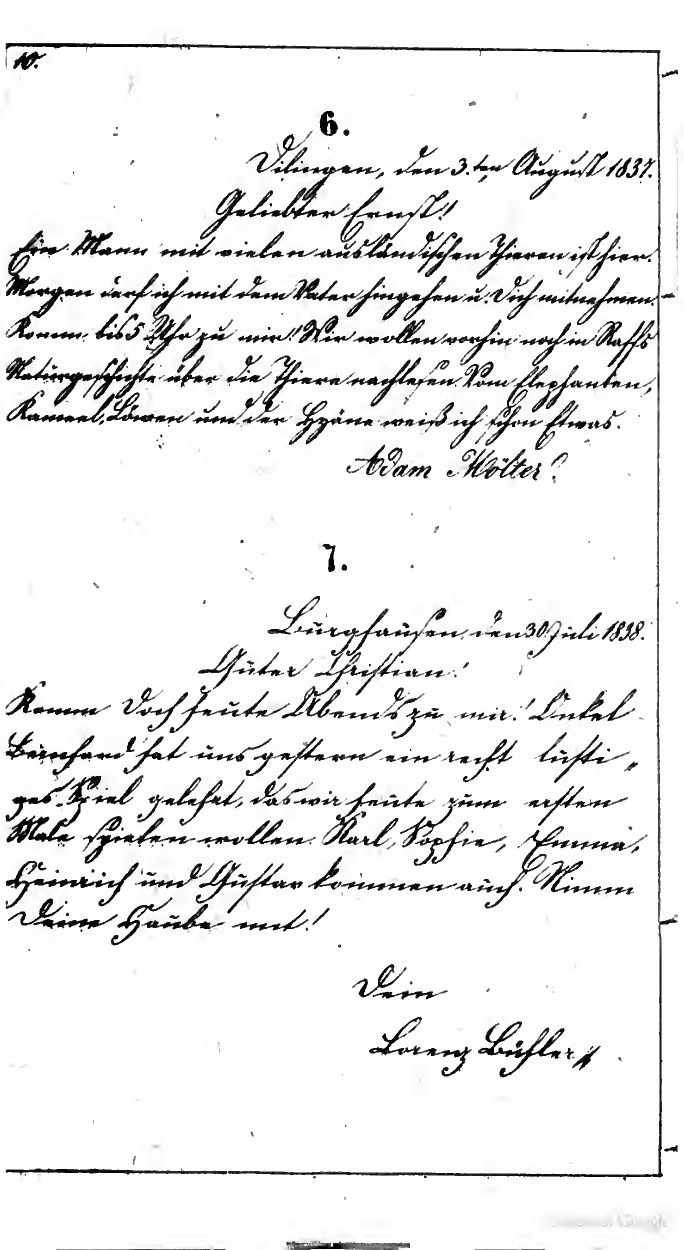 10.
6.
Dilingen, den 3.ten August 1837.
Geliebter Ernst!
Ein Mann mit vielen ausländischen Thieren ist hier.
Morgen darf ich mit dem Vater hingehen u. Dich mitnehmen.
Komm bis 5 Uhr zu mir! Wir wollen vorhin noch in Raffs
Naturgeschichte über die Thiere nachlesen. Vom Elephanten,
Kameel, Löwen und der Hyäne weiß ich schon Etwas.
Adam Mölter.
7.
Burghausen, den 30. Juli 1838.
Guter Christian!
Komm doch heute Abends zu mir! Onkel
Bernhard hat uns gestern ein recht lusti„
ges Spiel gelehrt, das wir heute zum ersten
Male spielen wollen. Karl, Sophie, Emma,
Heinrich und Gustav kommen auch. Nimm
Deine Haube mit!
Dein
Lorenz Bühler